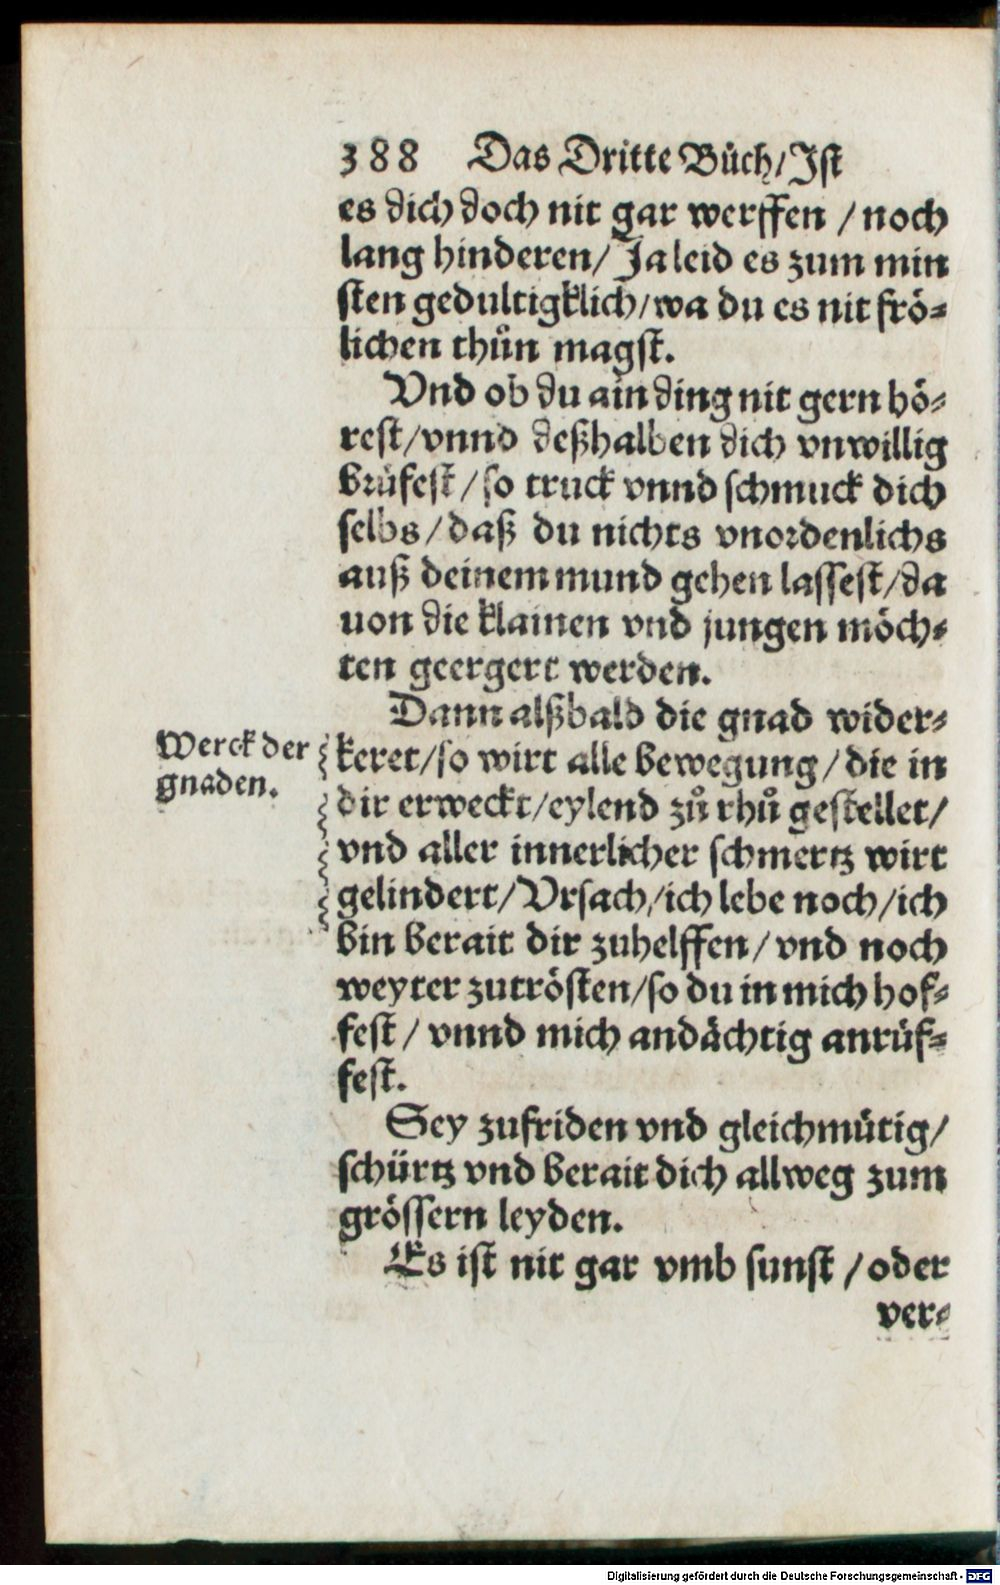 388 Das Dritte Bůch/Ist
es dich doch nit gar werffen / noch
lang hinderen/ Ja leid es zum min
sten gedultigklich/wa du es nit frö-
lichen thůn magst.
Vnd ob du ain ding nit gern hö-
rest/vnnd deßhalben dich vnwillig
brüfest / so truck vnnd schmuck dich
selbs / daß du nichts vnordenlichs
auß deinem mund gehen lassest/da
uon die klainen vnd jungen möch-
ten geergert werden.
Dann alßbald die gnad wider-
Werck der
gnaden.
keret/so wirt alle bewegung / die in
dir erweckt/eylend zů rhů gestellet/
vnd aller innerlicher schmertz wirt
gelindert/Vrsach/ich lebe noch/ich
bin berait dir zuhelffen/ vnd noch
weyter zutrösten/so du in mich hof-
fest / vnnd mich andächtig anrüf-
fest.
Sey zufriden vnd gleichmütig/
schürtz vnd berait dich allweg zum
grössern leyden.
Es ist nit gar vmb sunst / oder
ver-
Digitalisierung gefördert durch die Deutsche Forschungsgemeinschaft - DFG